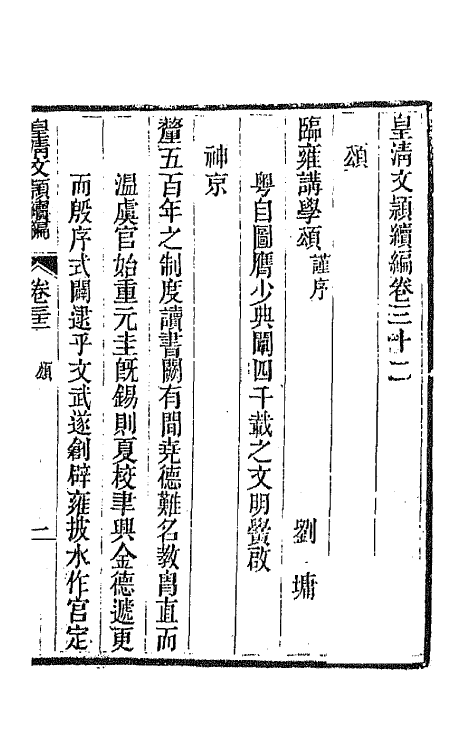 皇清文頴續編卷三十二
頌
臨雍講學頌 謹序 劉墉
粵自圖膺少典闡四千載之文明黌啟
神京
釐五百年之制度讀書闕有間堯德難名教胄直而
溫虞官始重元圭旣錫則夏校聿興金德遞更
而殷序式闢逮乎文武遂創辟雍披水作宮定
皇清文頴續編 卷三十二 頌 一